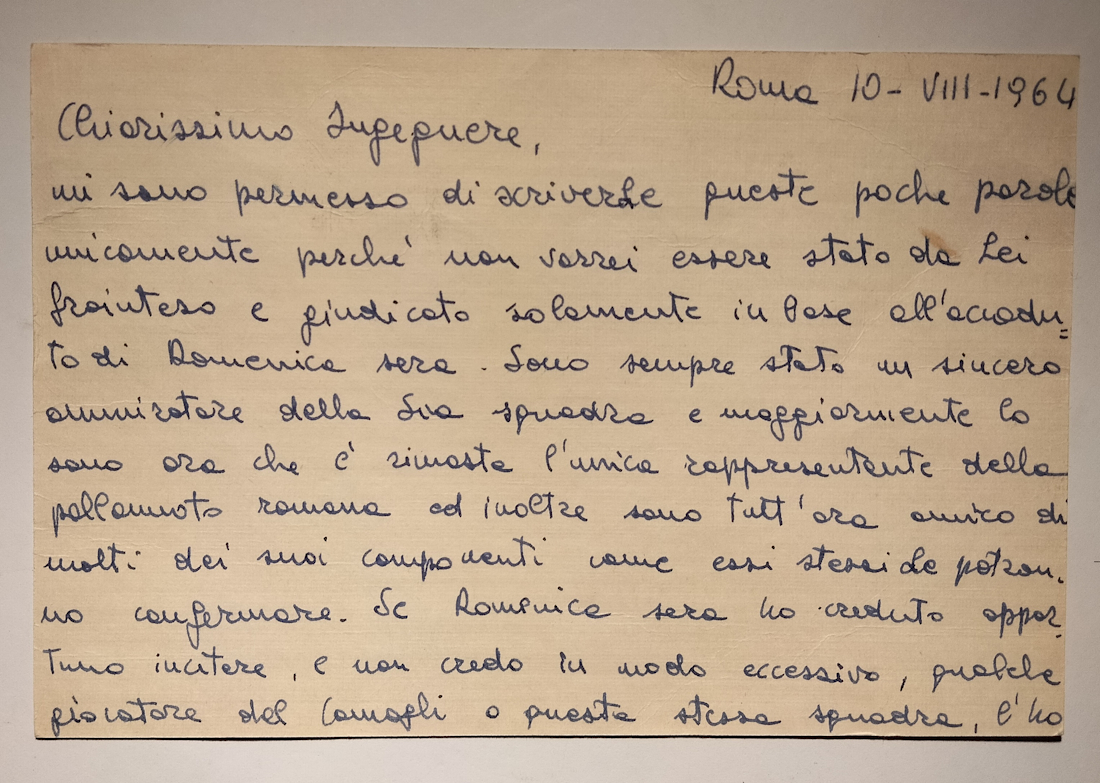 Roma 10-VIII-1964
Chiarissimo Ingegnere,
mi sono permesso di scriverLe queste poche parole
unicamente perche' non vorrei essere stato da Lei
frainteso e giudicato solamente in base all'accadu=
to di Domenica sera. Sono sempre stato un sincero
ammiratore della Sua squadra e maggiormente lo
sono ora che è rimasta l'unica rappresentante della
pallanuoto romana ed inoltre sono tutt'ora amico di
molti dei suoi componenti come essi stessi Le potran.
no confermare. Se Domenica sera ho creduto oppor.
tuno incitare, e non credo in modo eccessivo, qualche
giocatore del Camogli o questa stessa squadra, l'ho